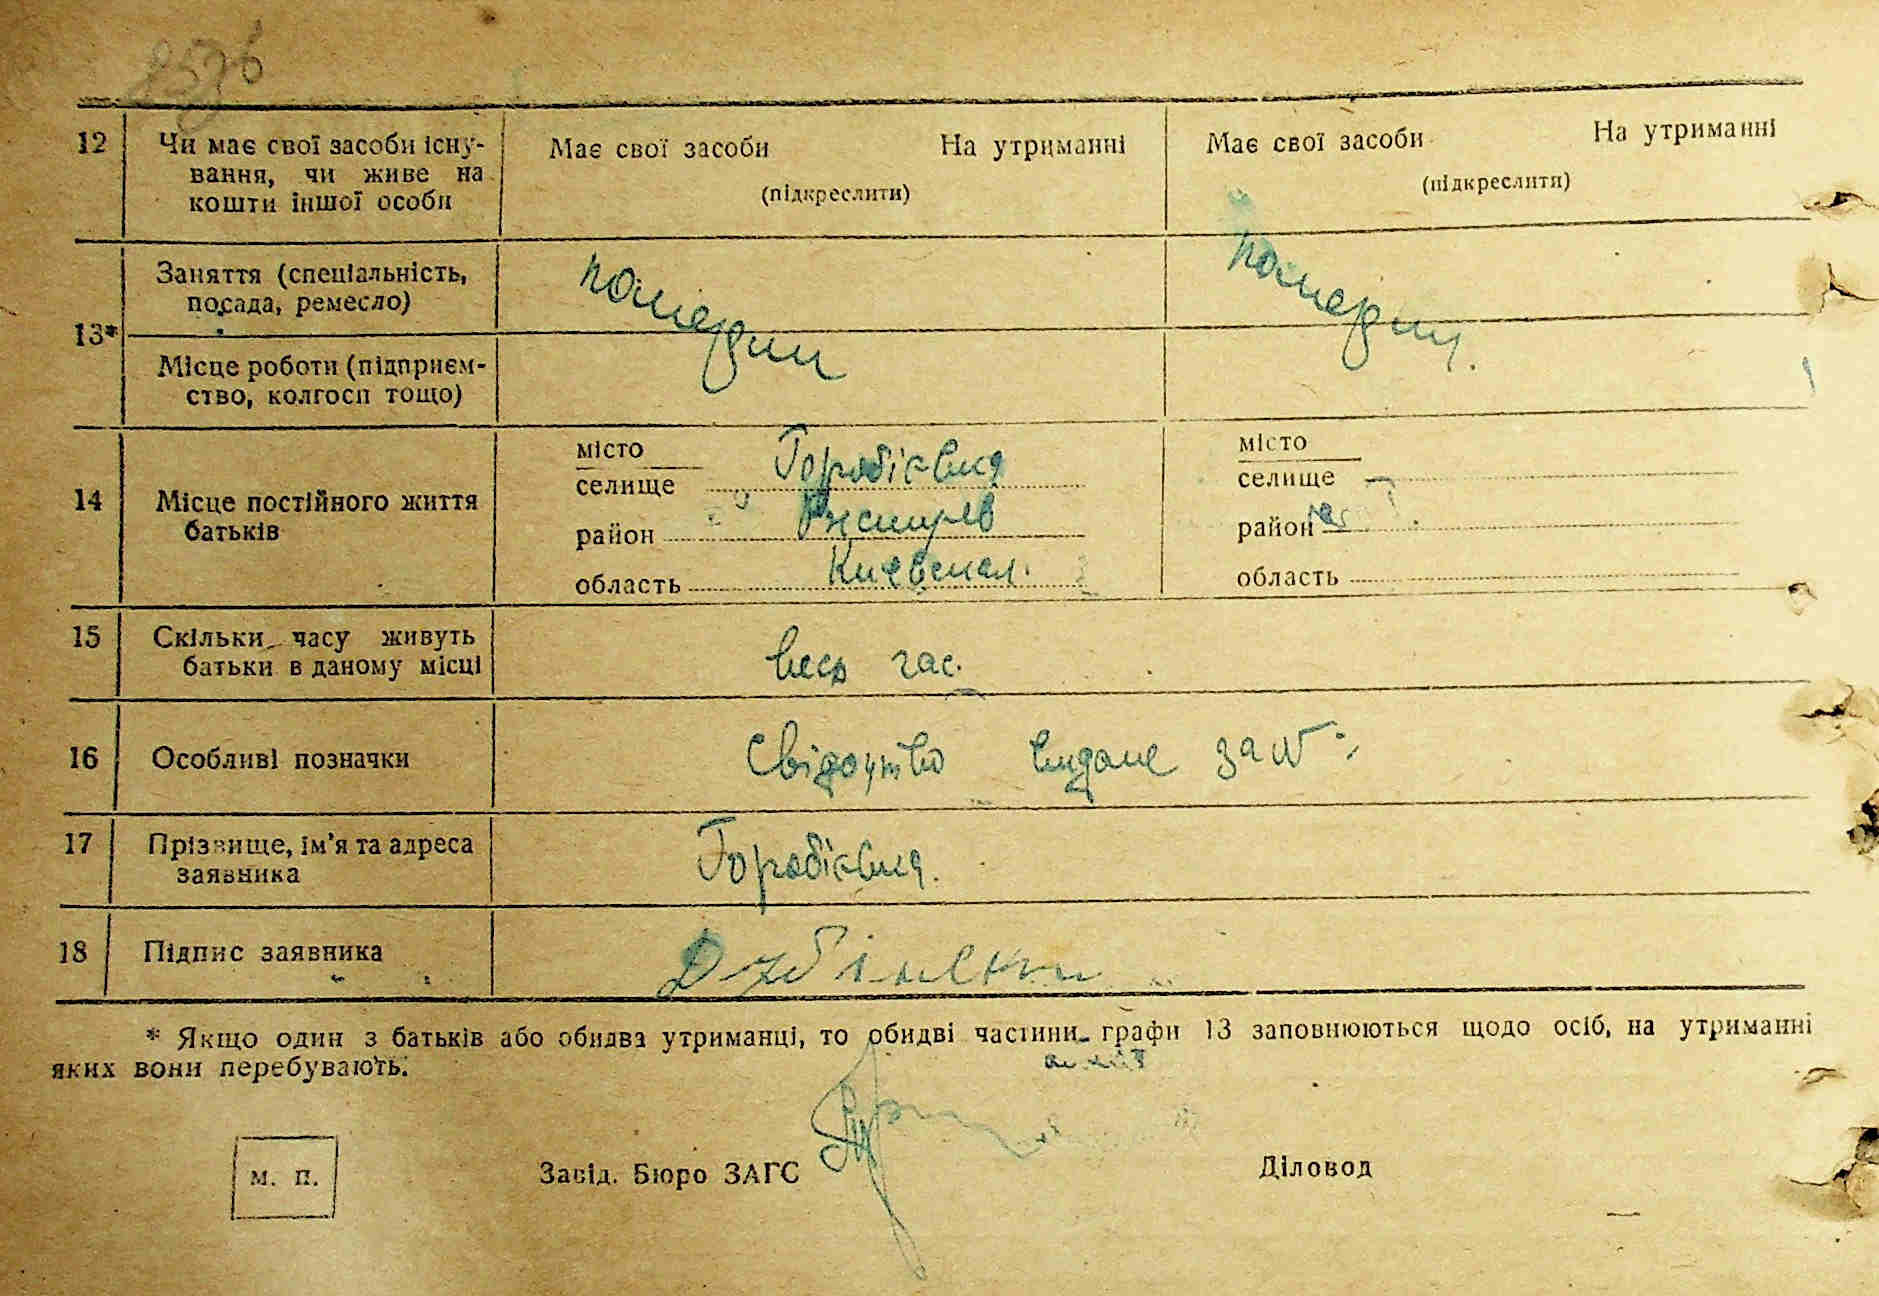 8576
12 Чи має свої засоби існу- Має свої засоби На утриманні Має свої засоби На утриманні
вання, чи живе на (підкреслити) (підкреслити)
кошти іншої особи
Заняття (спеціальність,
посада, ремесло)
померли померли.
13*
Місце роботи (підприєм-
ство, колгосп тощо)
14 Місце постійного життя
батьків
місто
селище Горобіївка
район Ржищев
область Киевская.
місто
селище
район
область
15 Скільки часу живуть
батьки в даному місці
весь час.
16 Особливі позначки Свідоцтво видане за №
17 Прізвище, ім'я та адреса
заявника
Горобіївка.
18 Підпис заявника
* Якщо один з батьків або обидва утриманці, то обидві частини графи 13 заповнюються щодо осіб, на утриманні
яких вони перебувають.
м. п. Завід. Бюро ЗАГС Діловод